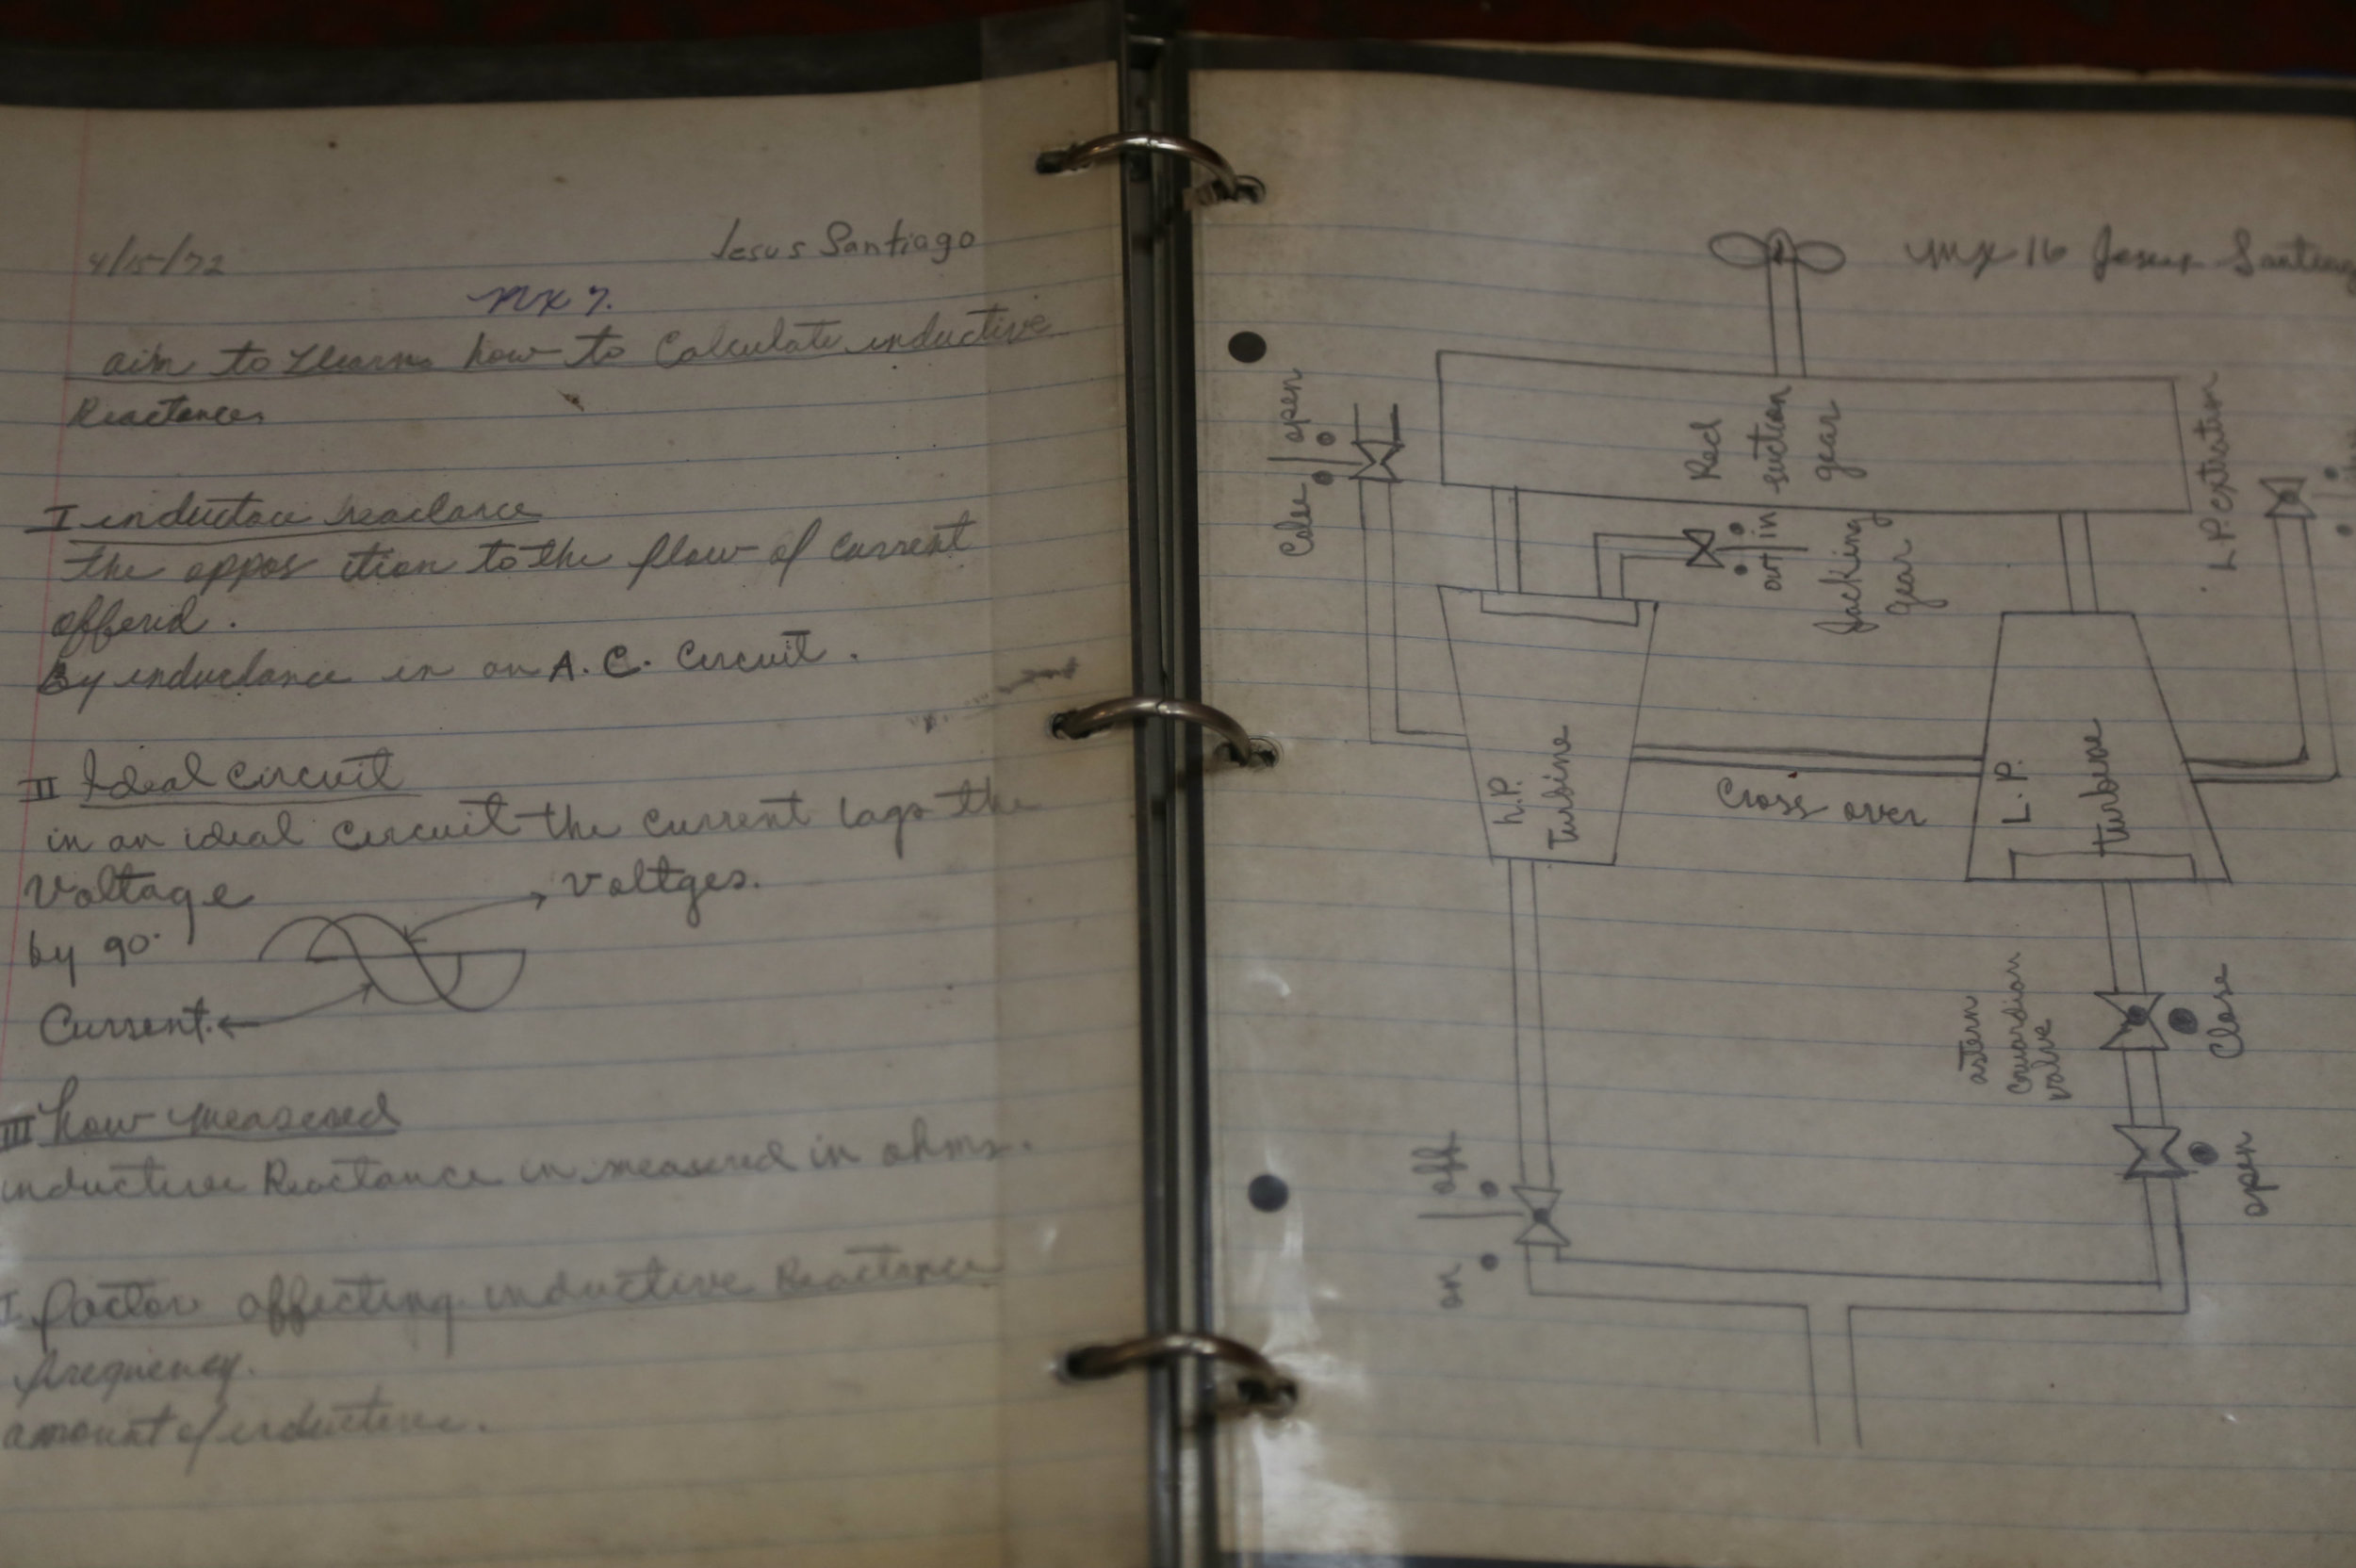 4/15/72
Jesus Santiago
MX 7.
aim to Llearn how to Calculate inductive
Reactances
I inductace reactance
the oppos ition to the flow of current
offered.
By inductance in an A.C. Circuit.
II Ideal circuit
in an ideal circuit the current lags the
Voltage
voltges.
by 90°
Current.
III how measered
inductive Reactance in measured in ohms.
I factor affecting inductive Reactance
frequency.
amount of inductence.
MX 16 Jesus
Close open
Red
suction
gear
L.P. extration
out in
Jacking
gear
h.P.
Turbine
Cross over
L.P.
turbine
astern
Guardian
valve
Close
open
on off